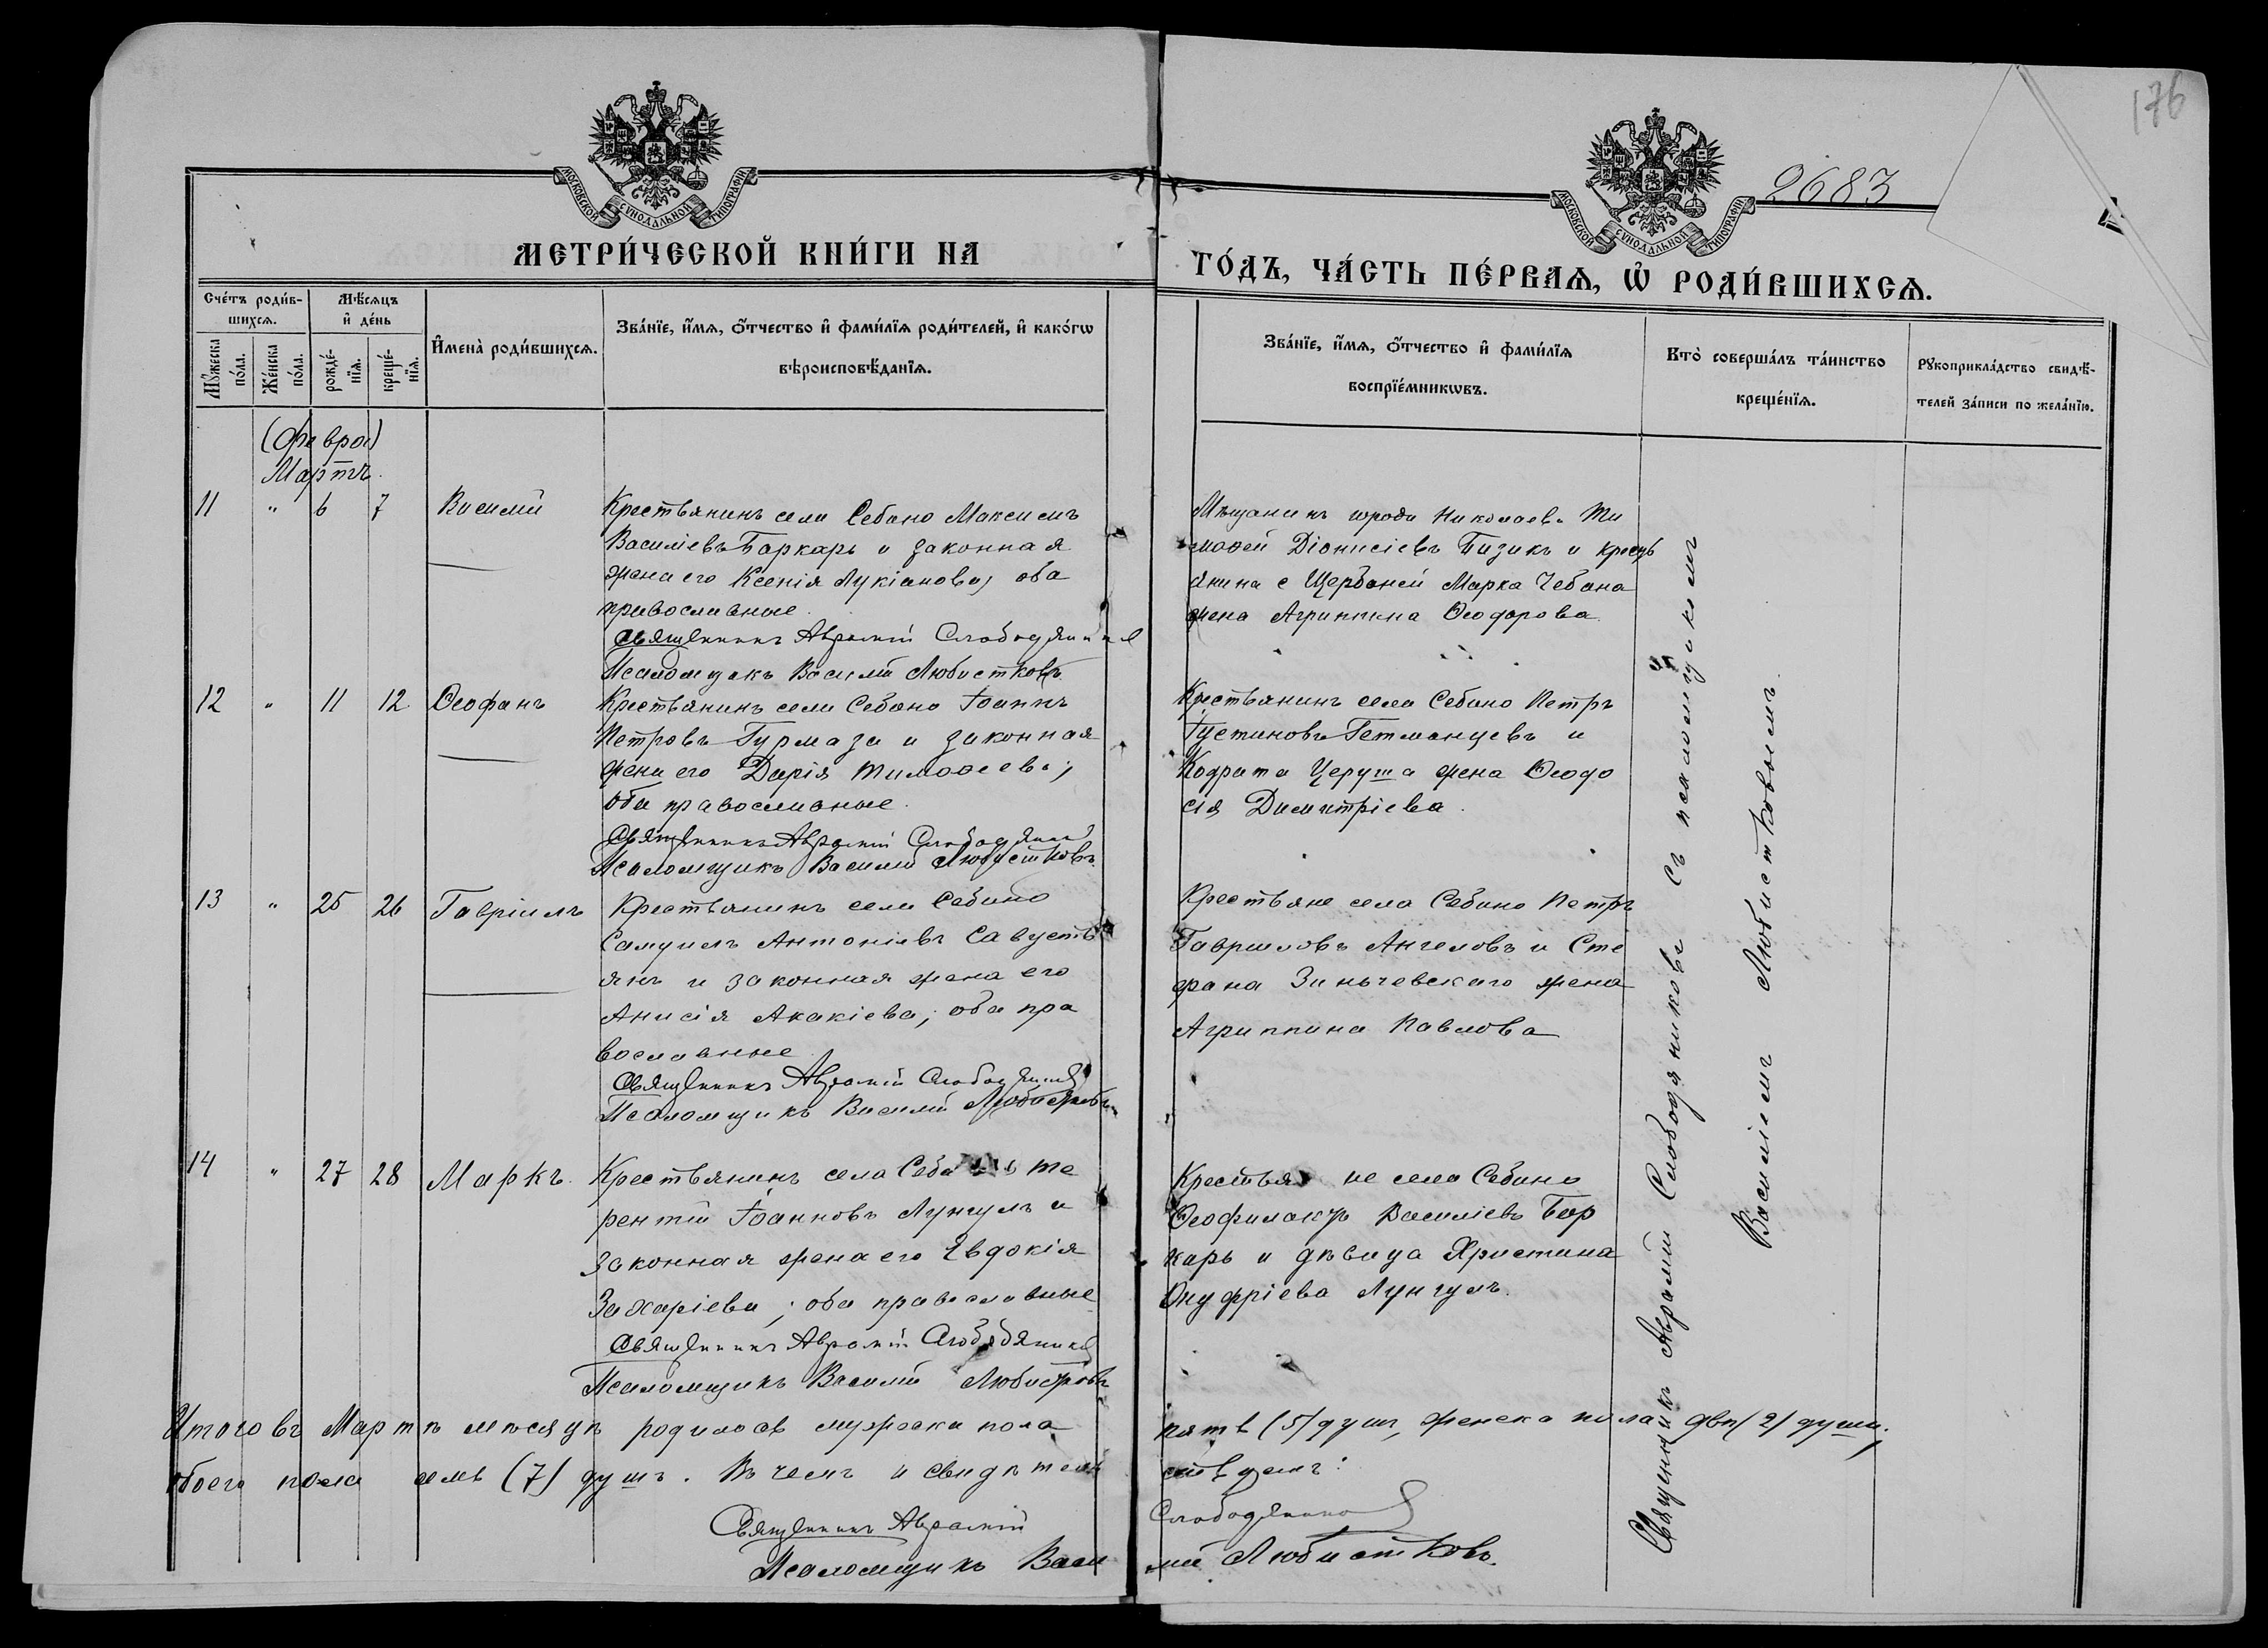 176
2683
МОСКОВСКОЙ СѴНОДАЛЬНОЙ ТИПОГРАФІИ
МОСКОВСКОЙ СѴНОДАЛЬНОЙ ТИПОГРАФІИ
МЕТРИ́ЧЕСКОЙ КНИ́ГИ НА
ГО́ДЪ, ЧА́СТЬ ПЕ́РВАѦ, Ѡ҆ РОДИ́ВШИХСѦ.
Сче́тъ роди́в-
шихсѧ.
Мѣ́сѧцъ
и҆ де́нь
Мꙋ́жеска
по́ла.
Же́нска
по́ла.
рожде́-
нїѧ.
креще́-
нїѧ.
И҆мена̀ роди́вшихсѧ.
Зва́нїе, и҆́мѧ, ѻ҆́тчество и҆ фами́лїѧ роди́телей, и҆ како́гѡ
вѣроисповѣ́данїѧ.
Зва́нїе, и҆́мѧ, ѻ҆́тчество и҆ фами́лїѧ
воспрїе́мникѡвъ.
Кто̀ соверша́лъ та́инство
креще́нїѧ.
Рꙋкоприкла́дство свидѣ́-
телей за́писи по жела́нїю.
(Февра)
Мартъ.
11 " 6 7 Василій
Крестьянинъ села Себино Максимъ
Василіевъ Боркарь и законная
жена его Ксенія Лукіанова, оба
православные.
Священникъ Аврамій Слободяник
Псаломщикъ Василій Любистковъ
Мѣщанинъ города Николаева Ти
моѳей Діонисіевъ Бизикъ и кресть
янина с Щербаней Марка Чебана
жена Агрипина Ѳеодорова
12 " 11 12 Ѳеофанъ
Крестьянинъ села Себино Іоаннъ
Петровъ Гурмаза и законная
жена его Дарія Тимоѳеева;
оба православные.
Священникъ Аврамій Слободяник
Псаломщикъ Василій Любистковъ
Крестьянинъ села Себино Петръ
Іустиновъ Гетманцевъ и
Кодрата Церуша жена Ѳеодо
сія Димитріева.
13 " 25 26 Гавріилъ
Крестьянинъ села Себино
Самуилъ Антоніевъ Савусть
янъ и законная жена его
Анисія Акакіева; оба пра
вославные
Священникъ Аврамій Слободяник
Псаломщикъ Василій Любистковъ
Крестьяне села Себино Петръ
Гавриловъ Ангеловъ и Сте
фана Зинчевскаго жена
Агриппина Павлова
14 " 27 28 Маркъ.
Крестьянинъ села Себино Те
рентій Іоанновъ Лунгулъ и
законная жена его Евдокія
Захаріева; оба православные
Священникъ Аврамій Слободяник
Псаломщикъ Василій Любистковъ
Крестьяне села Себино
Ѳеофилактъ Василіевъ Бор
карь и дѣвица Христина
Онуфріева Лунгулъ.
Священникъ Аврамій Слободяниковъ съ псаломщикомъ
Василіемъ Любистковымъ.
Итого въ Мартѣ мѣсяцѣ родилось мужеска пола пять (5) душъ, женска пола двѣ (2) души;
обоего пола семь (7) душъ. Въ чемъ и свидѣтельствуемъ:
Священникъ Аврамій Слободяник
Псаломщикъ Василій Любистковъ.